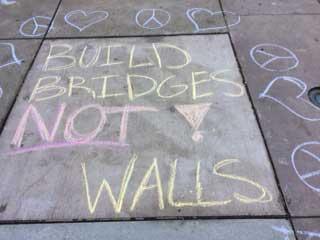 BUILD
BRIDGES
NOT
WALLS